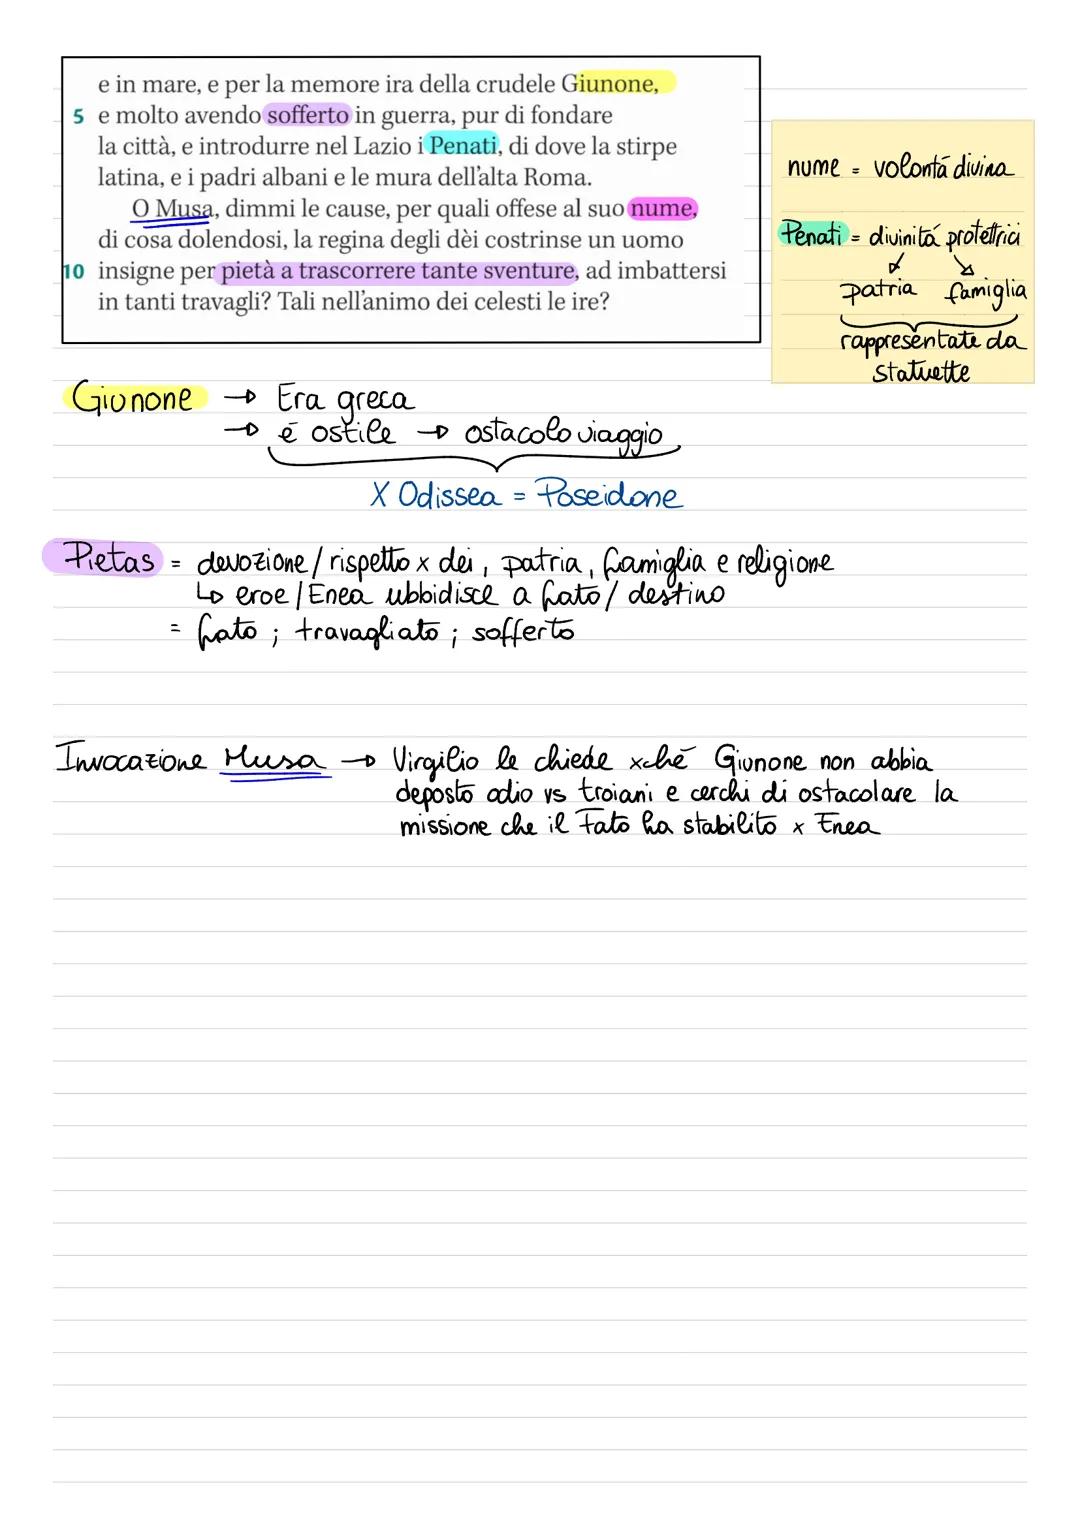 e in mare, e per la memore ira della crudele Giunone,
5 e molto avendo sofferto in guerra, pur di fondare
la città, e introdurre nel Lazio i Penati, di dove la stirpe
latina, e i padri albani e le mura dell'alta Roma.
O Musa, dimmi le cause, per quali offese al suo nume,
di cosa dolendosi, la regina degli dèi costrinse un uomo
10 insigne per pietà a trascorrere tante sventure, ad imbattersi
in tanti travagli? Tali nell'animo dei celesti le ire?
nume = volontá divina
Penati = divinitá protettrici
patria famiglia
rappresentate da
statuette
Giunone → Era greca
→ é ostile → ostacolo viaggio
X Odissea = Poseidone
Pietas = devozione / rispetto x dei, patria, famiglia e religione
↳ eroe / Enea ubbidisce a fato / destino
= fato ; travagliato ; sofferto
Invocazione Musa → Virgilio le chiede xché Giunone non abbia
deposto odio vs troiani e cerchi di ostacolare la
missione che il Fato ha stabilito x Enea